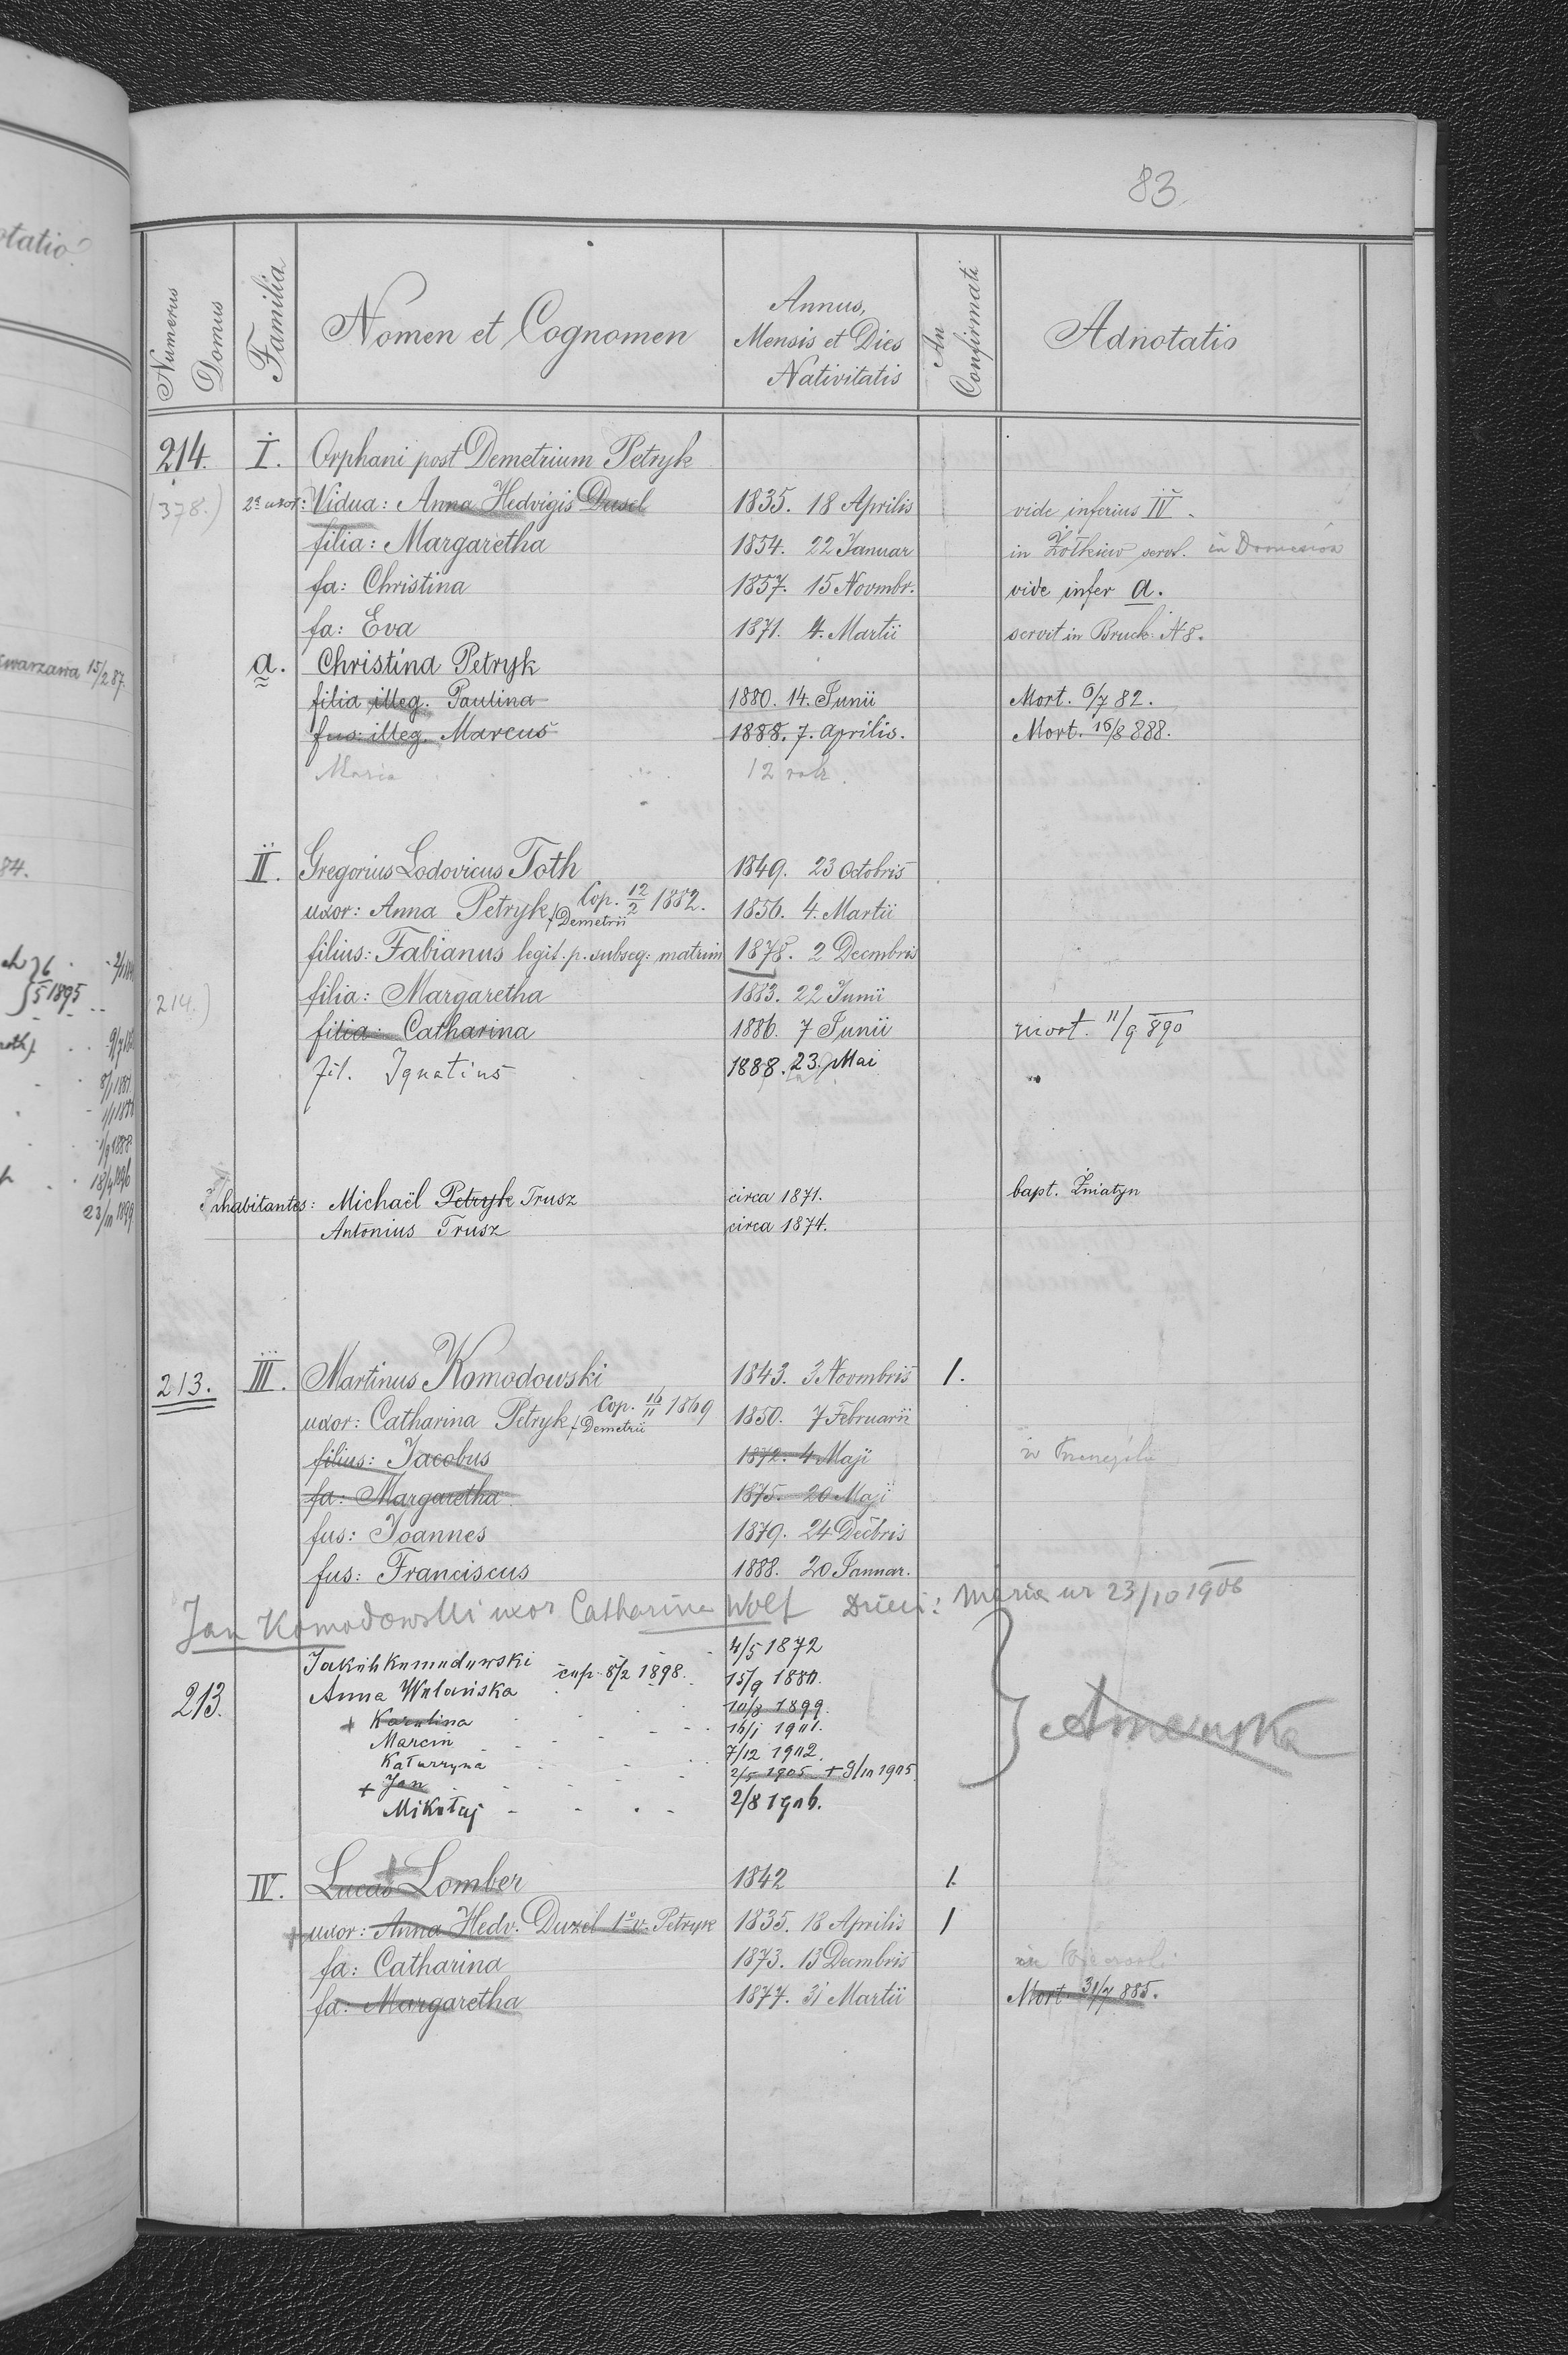 83.
Numerus Domus Familia Nomen et Cognomen Annus, Mensis et Dies Nativitatis An Confirmati Adnotatio
214. I. Orphani post Demetrium Petryk
(378.) 2a uxor: Vidua: Anna Hedvigis Dusel 1835. 18 Aprilis vide inferius IV.
filia: Margaretha 1854. 22 Januar in Żółkiew servit.
fa: Christina 1857. 15 Novmbr. vide infer a.
fa: Eva 1871. 4. Martii servit in Bruck: N 8.
a. Christina Petryk
filia illeg. Paulina 1880. 14. Junii Mort. 6/7 82.
fus: illeg. Marcus 1888. 7. Aprilis. Mort. 16/8 888.
Maria 12
II. Gregorius Lodovicus Toth 1849. 23 Octobris
uxor: Anna Petryk f Demetrii Cop. 12/2 1882. 1856. 4. Martii
filius: Fabianus legit. p. subseq: matrim 1878. 2 Decmbris
214.) filia: Margaretha 1883. 22 Junii
filia: Catharina 1886. 7 Junii mort. 11/9 890
fil. Ignatius 1888. 23. Mai
Inhabitantes: Michaël Petryk Trusz circa 1871. bapt. Żniatyn
Antonius Trusz circa 1874.
213. III. Martinus Komodowski 1843. 3 Novmbris 1.
uxor: Catharina Petryk f Demetrii Cop. 16/11 1869 1850. 7 Februarii
filius: Jacobus 1872. 4 Maji
fa: Margaretha 1875. 20 Maji
fus: Joannes 1879. 24 Decbris
fus: Franciscus 1888. 20 Januar.
Jan Komodowski uxor Catharina Wolf Dzieci: Maria ur 23/10 1906
Jakób Komodowski 4/5 1872
213. Anna Wolańska cop. 8/2 1898. 15/9 1880.
+ Karolina 10/8 1899.
Marcin 16/1 1901.
Katarzyna 7/12 1902.
+ Jan 2/5 1905 + 9/10 1905
Mikołaj 2/8 1906.
Ameryka
IV. Lucas Lomber 1842 1.
+ uxor: Anna Hedv. Duzel 1o v. Petryk 1835. 18 Aprilis 1
fa: Catharina 1873. 13 Decmbris
fa: Margaretha 1877. 31 Martii Mort. 31/7 885.